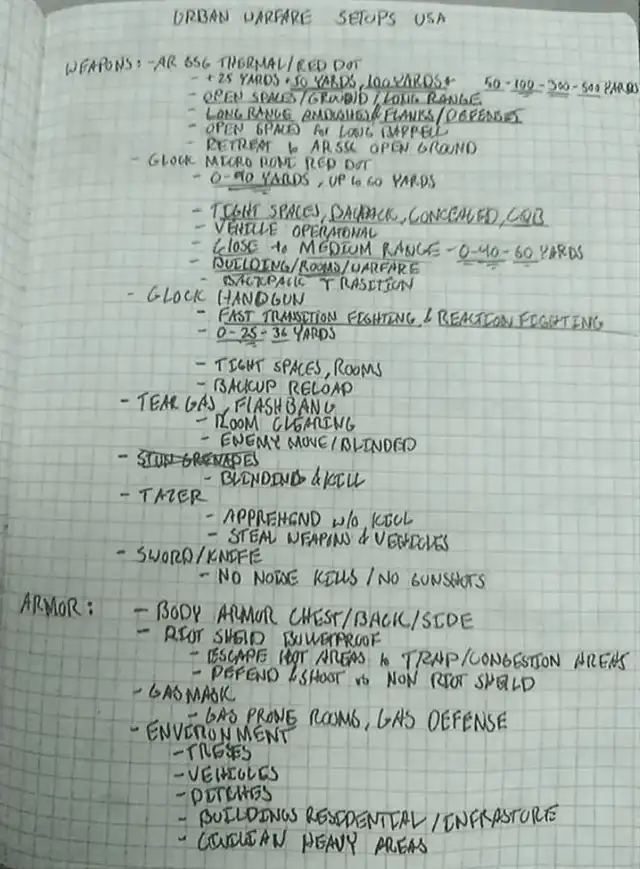 URBAN WARFARE SETUPS USA
WEAPONS: - AR 556 THERMAL/RED DOT
- + 25 YARDS + 50 YARDS, 100 YARDS + 50-100-300-500 YARDS
- OPEN SPACES/GROUND/LONG RANGE
- LONG RANGE AMBUSHES & FLANKS/DEFENSES
- OPEN SPACES for LONG BARRELL
- RETREAT to AR556 OPEN GROUND
- GLOCK MICRO RONI RED DOT
- 0-40 YARDS, UP to 60 YARDS
- TIGHT SPACES, BACKPACK, CONCEALED, CQB
- VEHICLE OPERATIONAL
- CLOSE to MEDIUM RANGE - 0-40-60 YARDS
- BUILDING/ROOMS/WARFARE
- BACKPACK TRASITION
- GLOCK HANDGUN
- FAST TRANSITION FIGHTING & REACTION FIGHTING
- 0-25-36 YARDS
- TIGHT SPACES, ROOMS
- BACKUP RELOAD
- TEAR GAS, FLASHBANG
- ROOM CLEARING
- ENEMY MOVE/BLINDED
- STUN GRENADES
- BLINDING & KILL
- TAZER
- APPREHEND w/o KILL
- STEAL WEAPONS & VEHICLES
- SWORD/KNIFE
- NO NOISE KILLS/NO GUNSHOTS
ARMOR: - BODY ARMOR CHEST/BACK/SIDE
- RIOT SHEILD BULLETPROOF
- ESCAPE HOT AREAS to TRAP/CONGESTION AREAS
- DEFEND & SHOOT vs NON RIOT SHIELD
- GAS MASK
- GAS PRONE ROOMS, GAS DEFENSE
- ENVIRONMENT
- TREES
- VEHICLES
- DITCHES
- BUILDINGS RESIDENTIAL/INFRASTURE
- CIVILIAN HEAVY AREAS